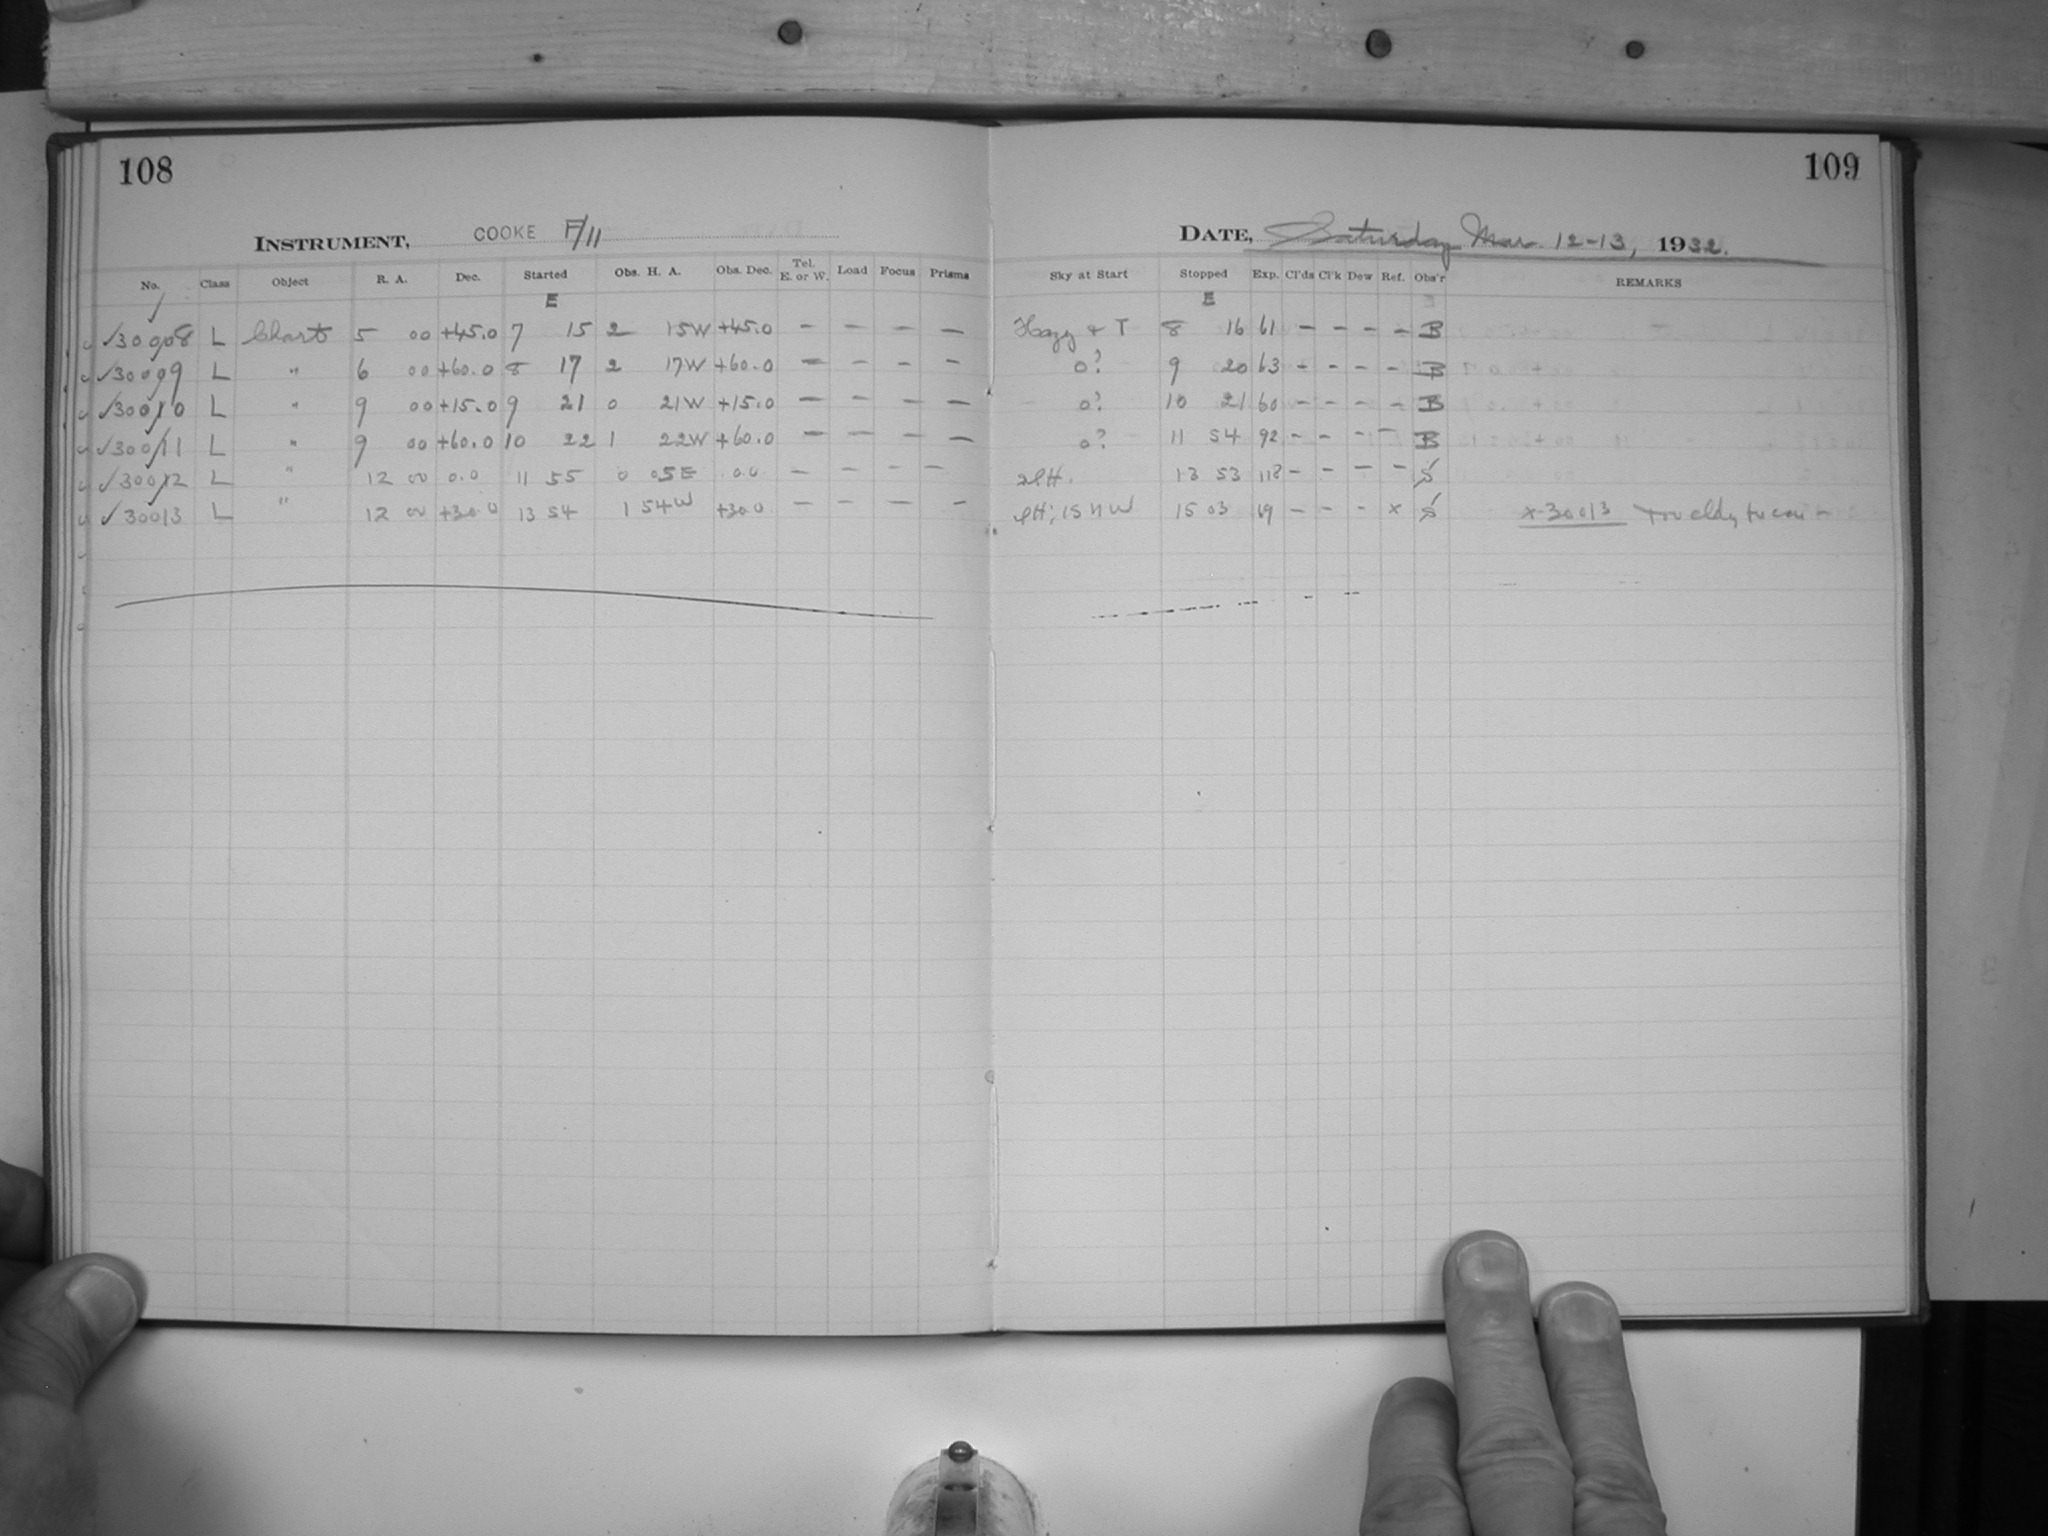 108
INSTRUMENT, COOKE F/11
No. Class Object R. A. Dec. Started Obs. H. A. Obs. Dec. Tel. E. or W. Load Focus Prisms
E
✓30008 L Chart 5 00 +45.0 7 15 2 15W +45.0 — — — —
✓30009 L " 6 00 +60.0 8 17 2 17W +60.0 — — — —
✓30010 L " 9 00 +15.0 9 21 0 21W +15.0 — — — —
✓30011 L " 9 00 +60.0 10 22 1 22W +60.0 — — — —
✓30012 L " 12 00 0.0 11 55 0 05E 0.0 — — — —
✓30013 L " 12 00 +30.0 13 54 1 54W +30.0 — — — —
109
DATE, Saturday Mar. 12-13, 1932.
Sky at Start Stopped Exp. Cl'ds Cl'k Dew Ref. Obs'r REMARKS
E
Hazy + T 8 16 61 — — — — B
0? 9 20 63 - - - - B
0? 10 21 60 - - - - B
0? 11 54 92 - - - - B
13 53 118 - - - - S
15 03 69 - - - x S x-30013